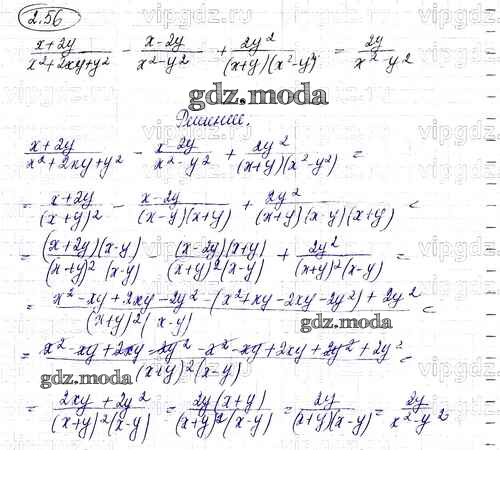 2.56
(x+2y)/(x²+2xy+y²) - (x-2y)/(x²-y²) + 2y²/((x+y)(x²-y²)) = 2y/(x²-y²)
gdz.moda
Решение:
(x+2y)/(x²+2xy+y²) - (x-2y)/(x²-y²) + 2y²/((x+y)(x²-y²)) =
= (x+2y)/(x+y)² - (x-2y)/((x-y)(x+y)) + 2y²/((x+y)(x-y)(x+y)) =
= (x+2y)(x-y)/((x+y)²(x-y)) - (x-2y)(x+y)/((x+y)²(x-y)) + 2y²/((x+y)²(x-y)) =
= (x²-xy+2xy-2y²-(x²+xy-2xy-2y²)+2y²)/((x+y)²(x-y)) =
gdz.moda
= (x²-xy+2xy-2y²-x²-xy+2xy+2y²+2y²)/((x+y)²(x-y)) =
gdz.moda
= (2xy+2y²)/((x+y)²(x-y)) = 2y(x+y)/((x+y)²(x-y)) = 2y/((x+y)(x-y)) = 2y/(x²-y²)
vipgdz.com